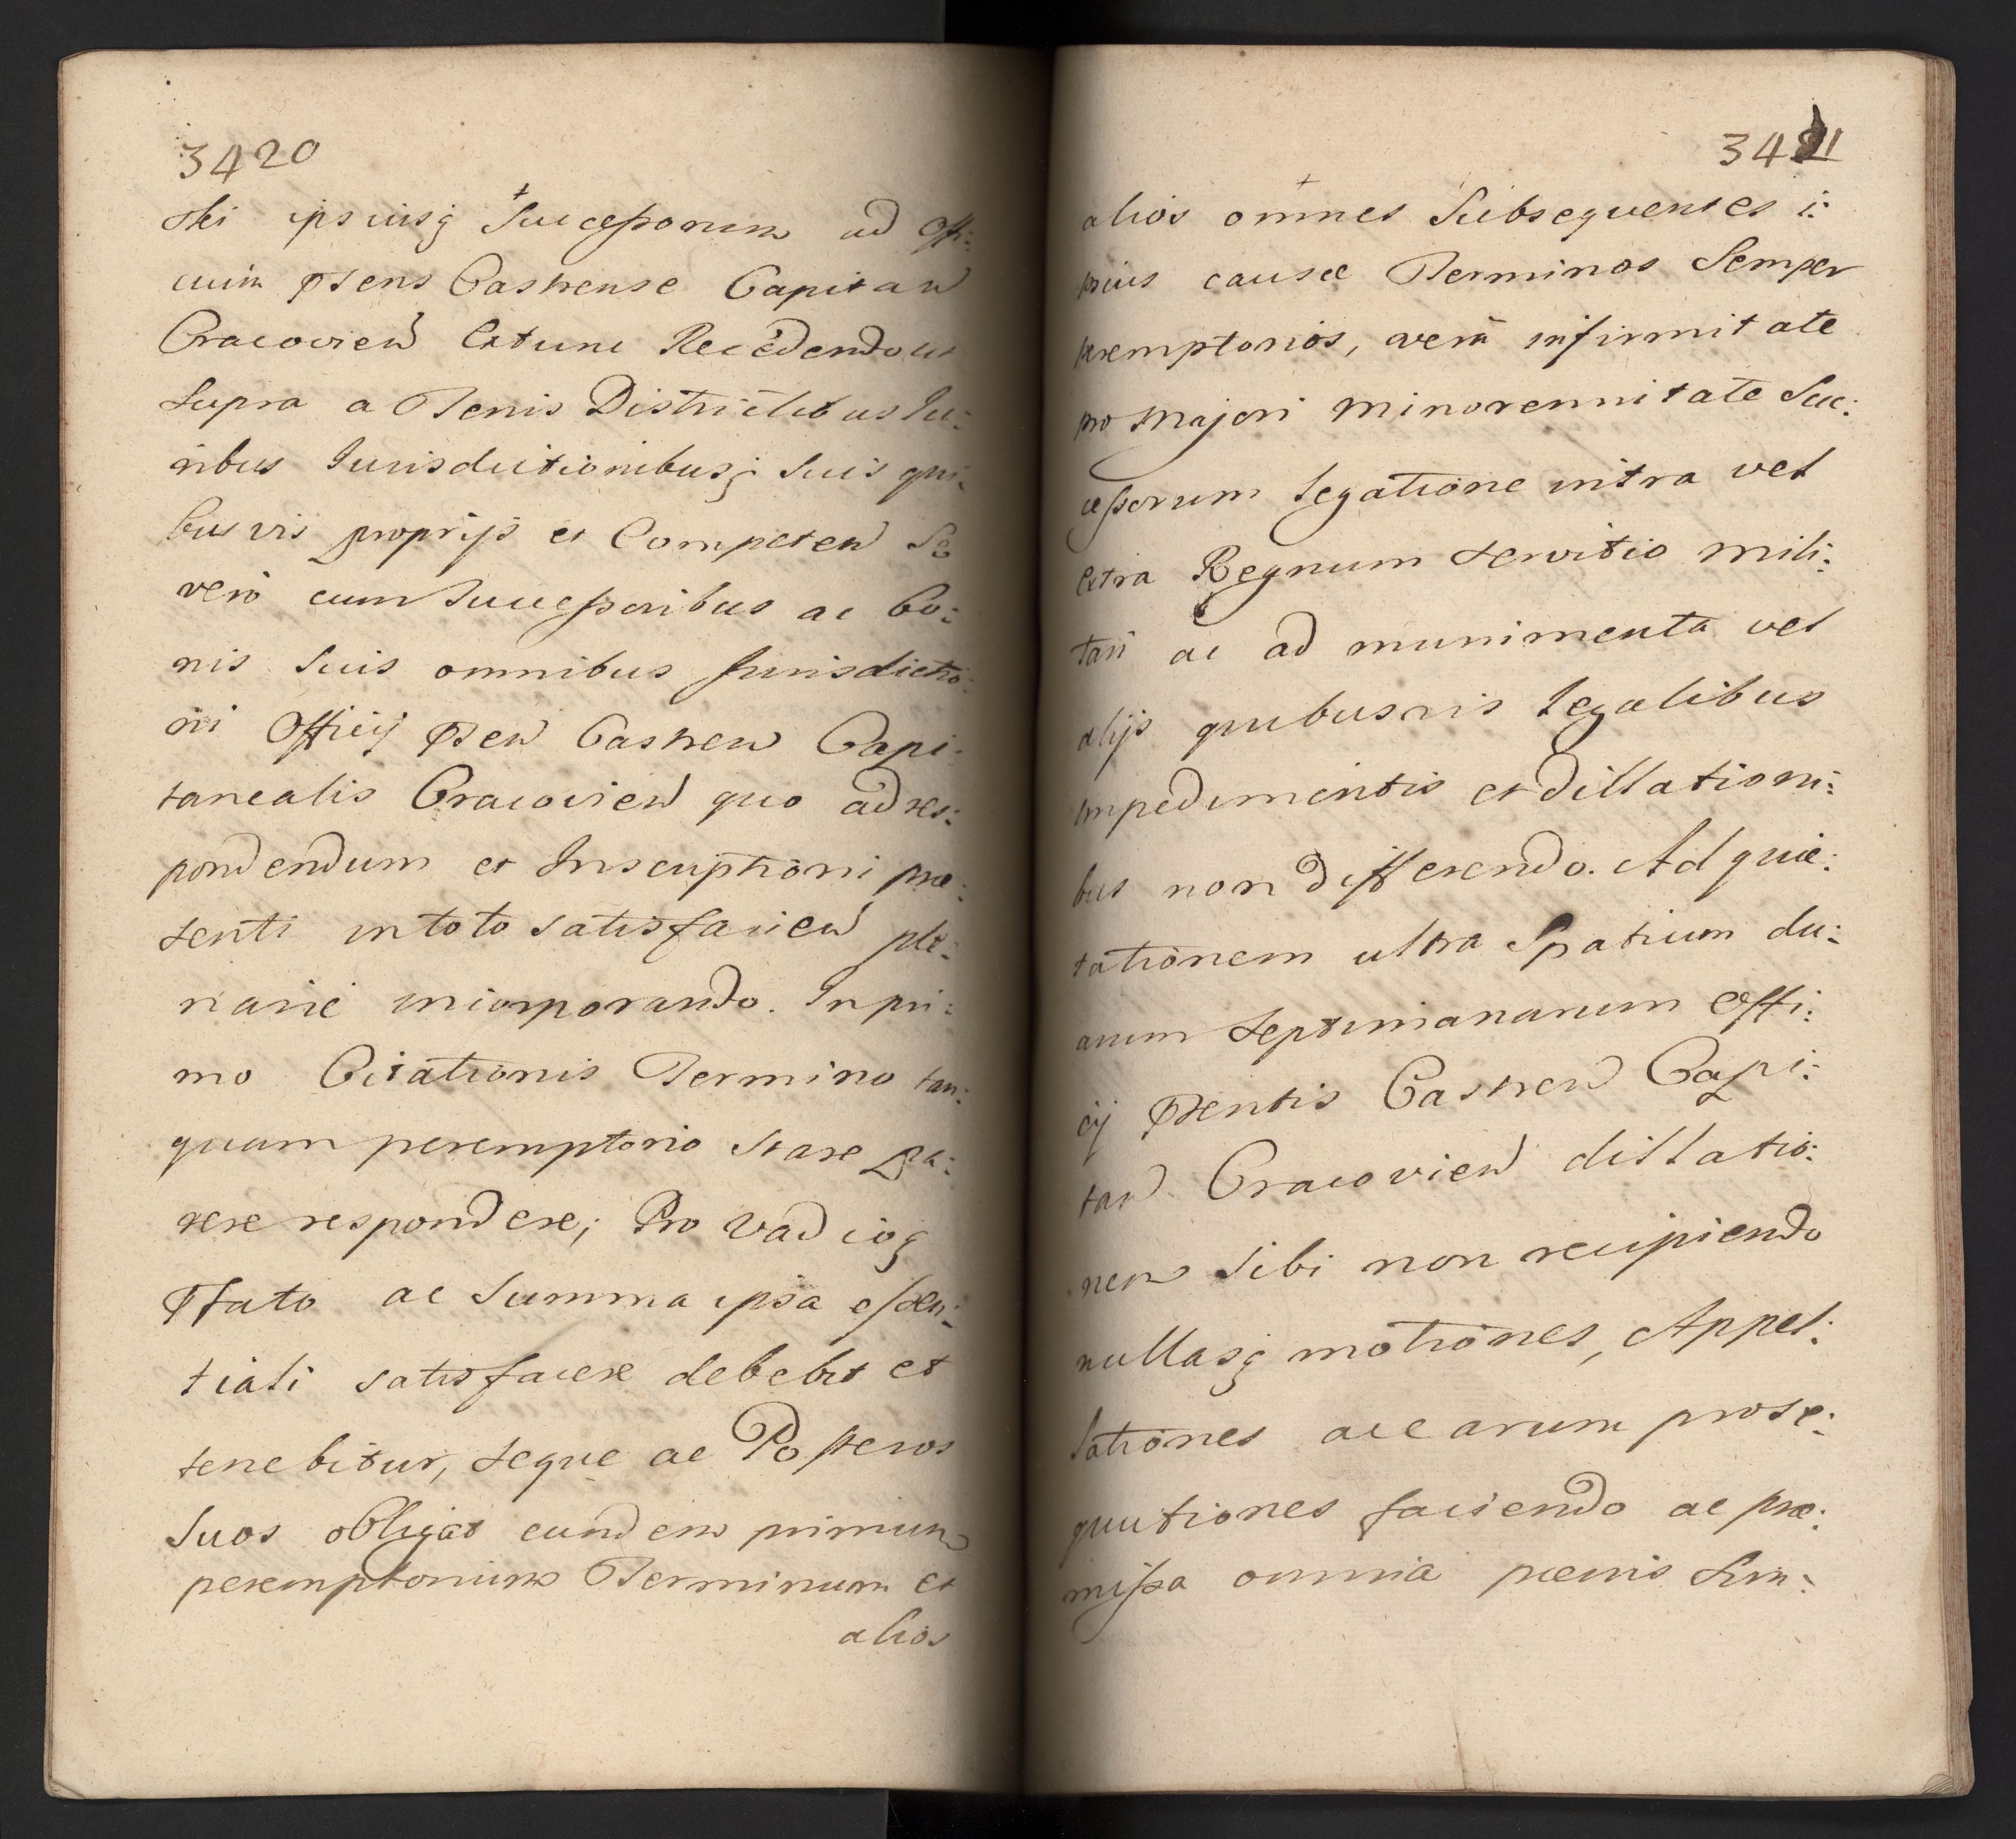 3420
sti ipsiusq Successorum ad Offi:
cium Ptens Castrense Capitan
Cracovien Extunc Recedendo ut
supra a Tenis Districtibus Iu:
ribus Iurisdictionibusq suis qui:
busvis proprijs et Competen Se
vero cum Successoribus ac bo:
nis suis omnibus Jurisdictio:
ni Officij Pten Castren Capi:
tanealis Cracovien quo ad res:
pondendum et Inscriptioni præ:
senti in toto satisfacien ple:
narie incorporando. In pri:
mo Citationis Termino tan:
quam peremptorio stare pa:
rere respondere; Pro vadioq
Pfato ac summa ipsa essen:
tiali satisfacere debebit et
tenebitur, seque ac Posteros
suos obligat eundem primum
peremptorium Terminum et
alios
3421
alios omnes Subsequentes i:
psius causæ Terminos Semper
peremptorios, vera infirmitate
pro majori minorennitate Suc:
cessorum legatione intra vel
extra Regnum servitio mili:
tari ac ad munimenta vel
alijs quibusvis legalibus
impedimentis et dillationi:
bus non differendo. Ad quie:
tationem ultra Spatium du:
arum septimanarum Offi:
cij Ptentis Castren Capi:
tan Cracovien dillatio:
nem sibi non recipiendo
nullasq motiones, Appel:
lationes ac earum prose:
quutiones faciendo ac præ:
missa omnia pænis Sim: